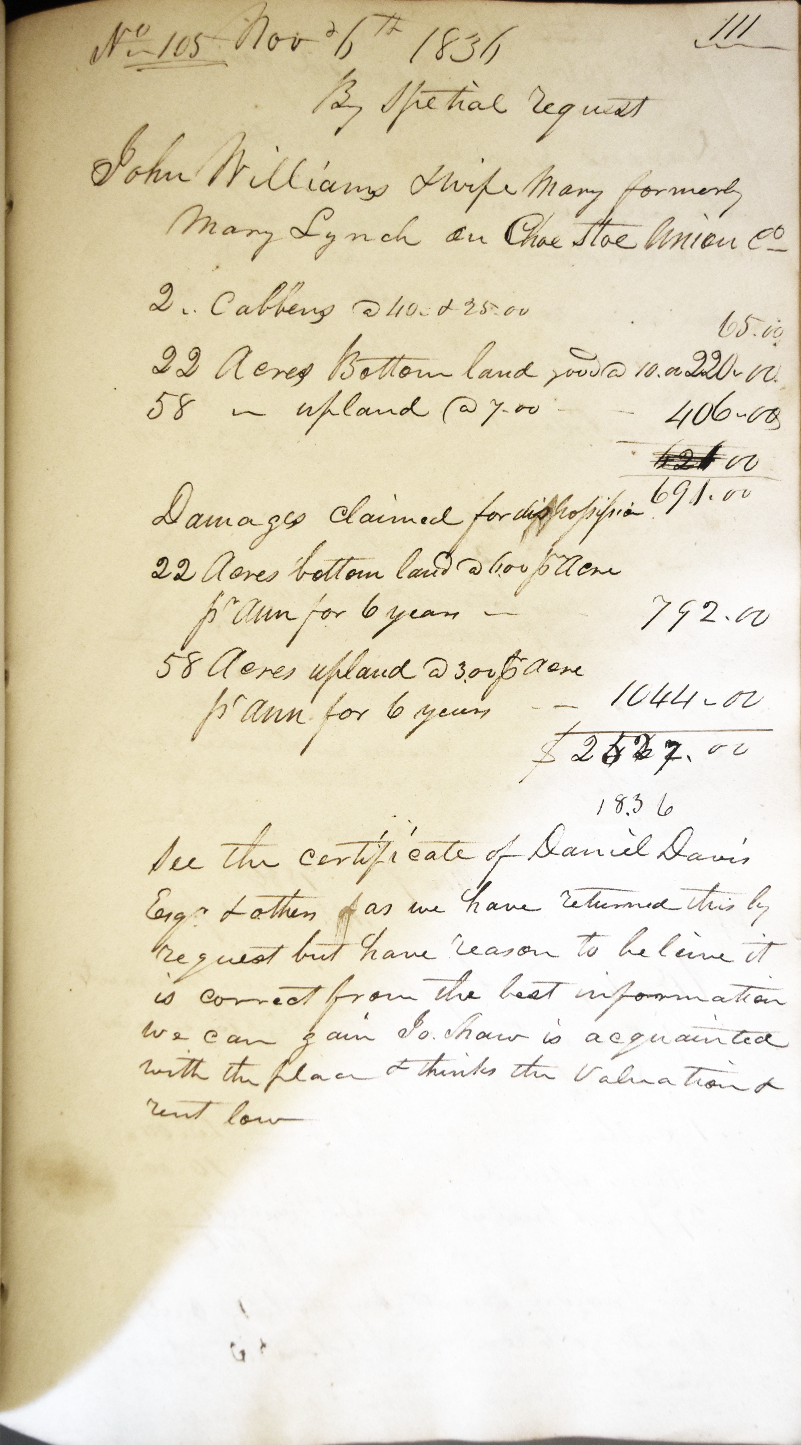 No 105 Novr 6th 1836 111
By Spetial request
John Williams & wife Mary formerly
Mary Lynch on Choe stoe Union Co
2 " Cabbens @ 40. & 25.00 65.00
22 Acres Bottom land good @ 10.00 220.00
58 " upland @ 7.00 - - 406.00
621.00
691.00
Damages claimed for dispossession
22 Acres bottom land @ 6.00 pr Acre
pr Ann for 6 years - - 792.00
58 Acres upland @ 3.00 pr acre
pr Ann for 6 years - - 1044.00
$ 2527.00
1836
See the certificate of Daniel Davis
Esqr & others as we have returned this by
request but have reason to beleive it
is correct from the best information
we can gain Jo. Shaw is acquainted
with the place & thinks the Valuation &
rent low